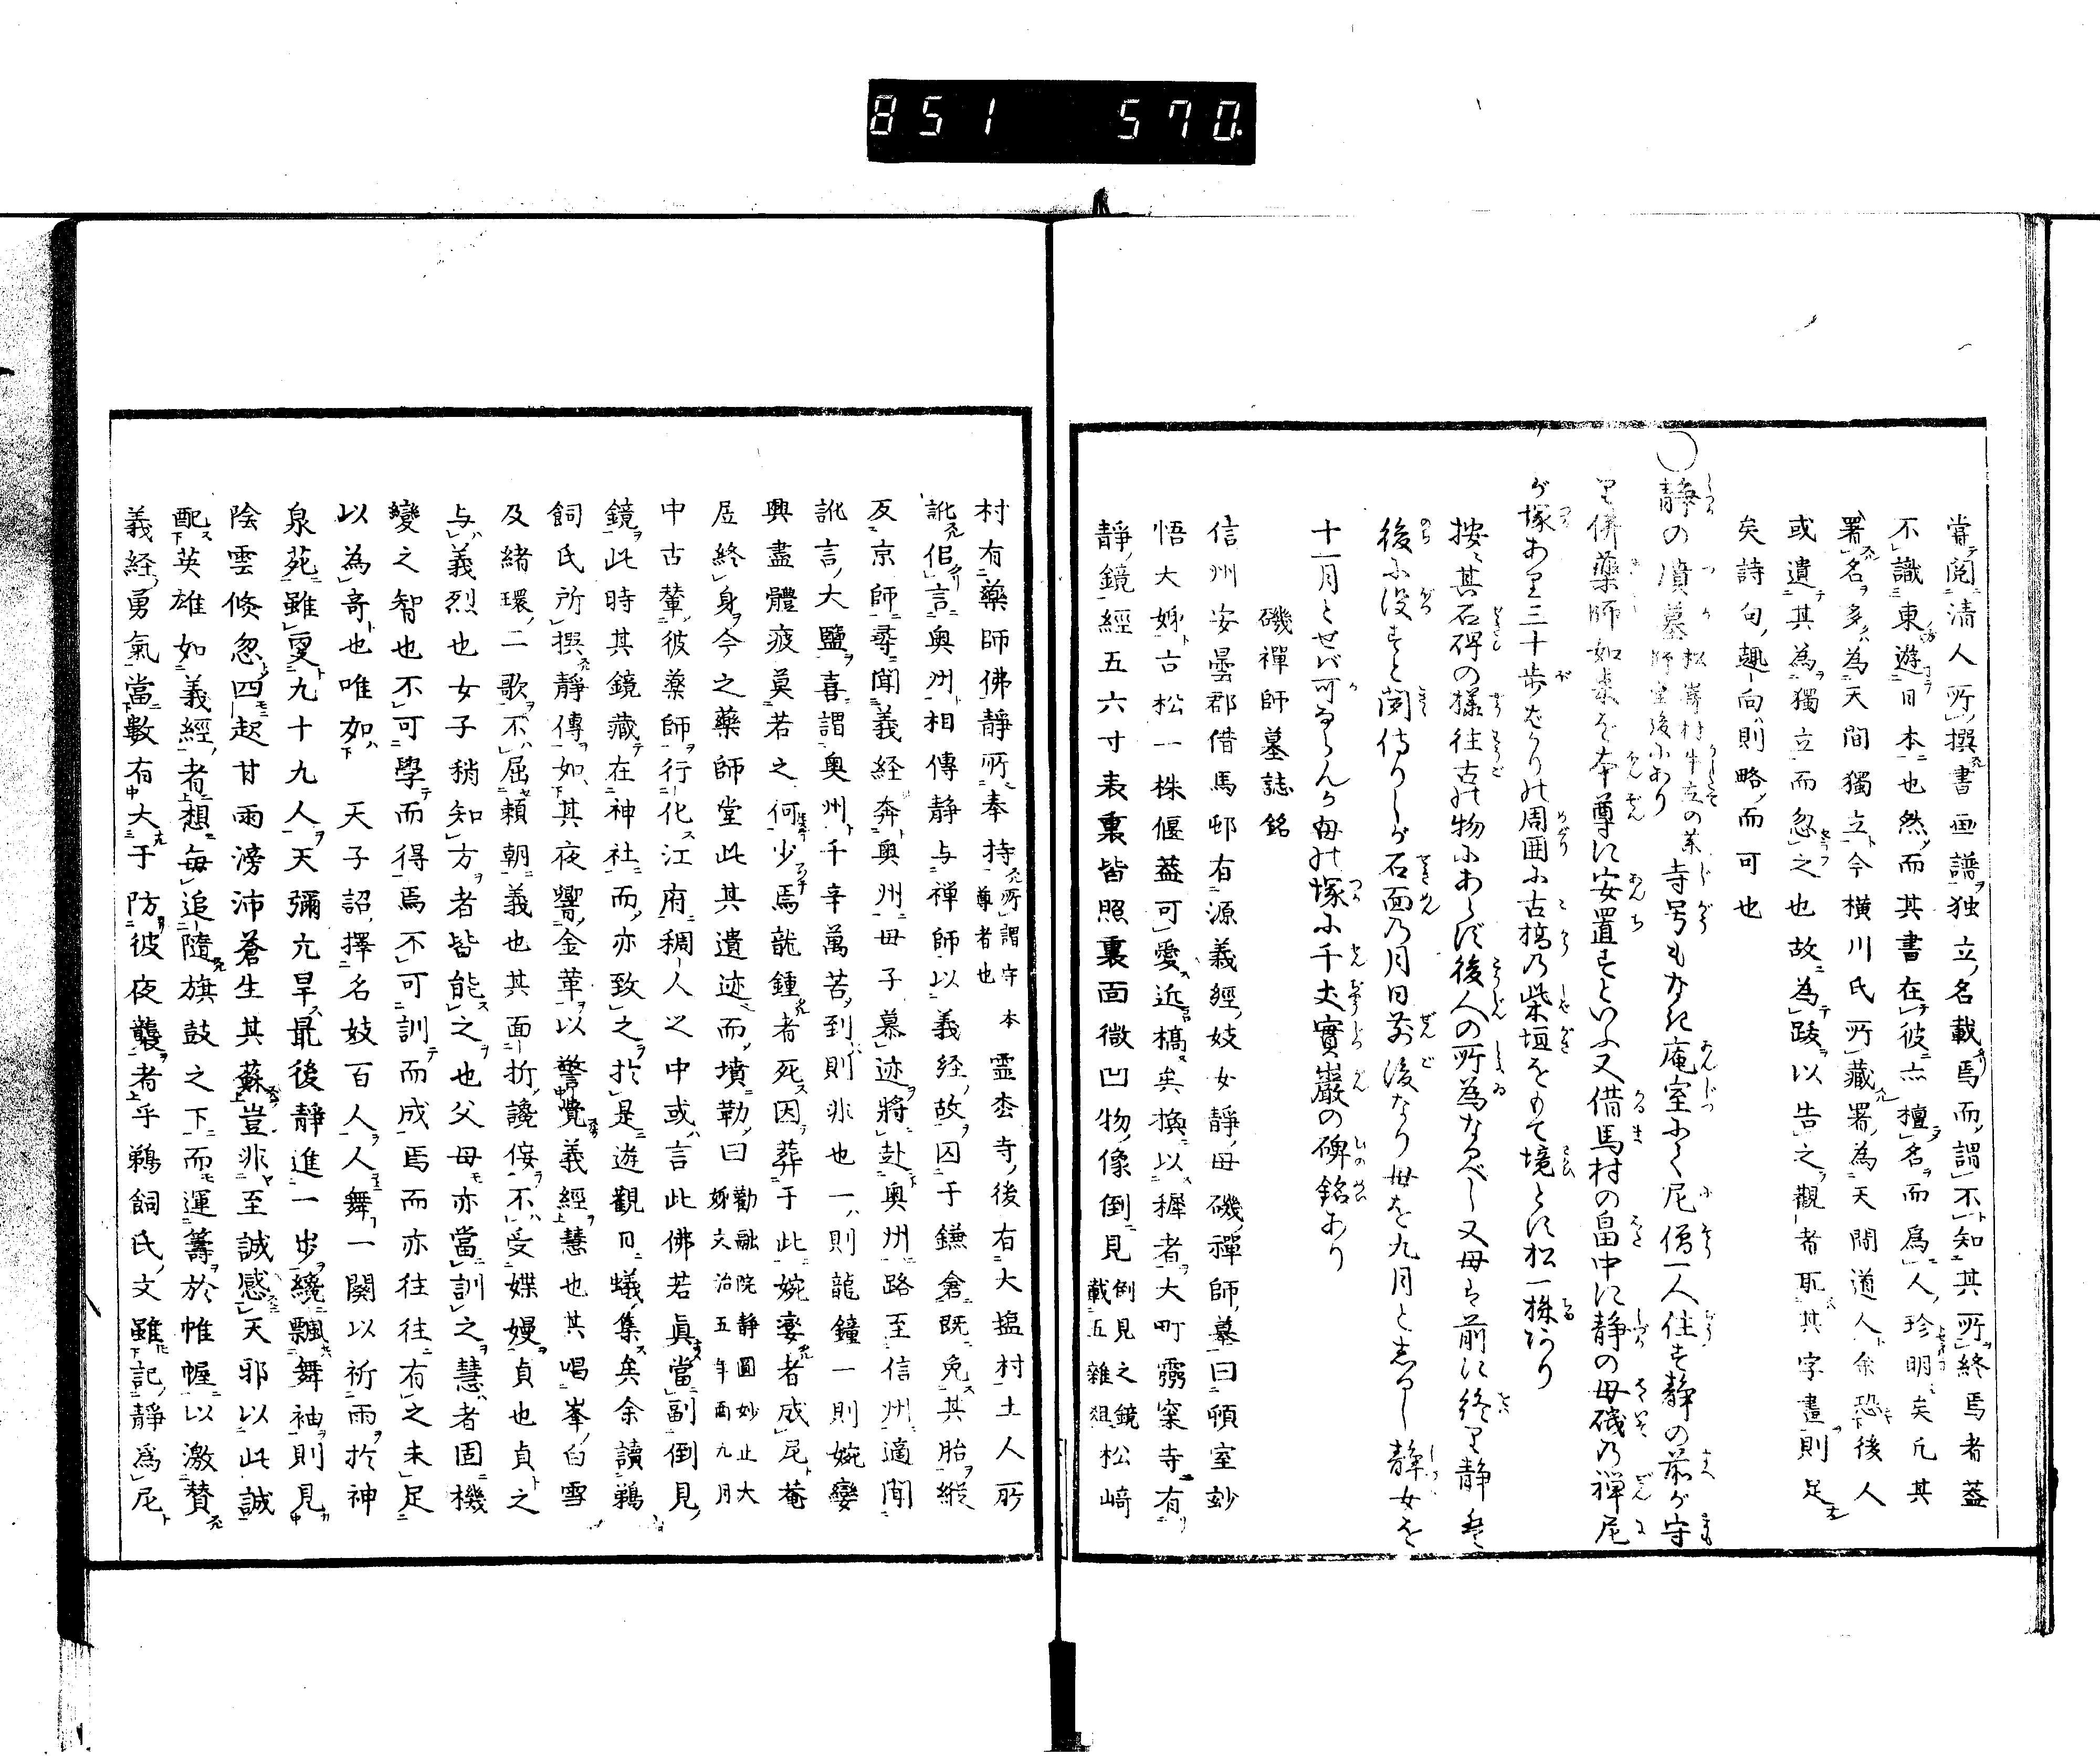 851 570
嘗閲清人所撰書画譜独立名載焉而謂不知其所終焉者蓋
不識東遊日本也然而其書在彼亦擅名而為人珍明矣凡其
署名多為天間獨立今横川氏所藏署為天間道人余恐後人
或遺其為獨立而忽之也故為跋以告之觀者取其字畫則足
矣詩句趣向則略而可也
○静の墳墓 寺号もなき庵室にて尼僧一人住す静の前が守
り佛薬師如来を本尊に安置すといふ又借馬村の畠中に静の母磯の禅尼
が塚あり三十歩ばかりの周囲に古槁の柴垣をもて境とに松一株あり
按に其石碑の様往古の物にあらず後人の所為なるべし又母は前に終り静は
後に没すと聞侍りしが石面の月日前後なり母を九月としるし静女を
十一月とせバ可ならんか母の塚に千丈實巖の碑銘あり
磯禪師墓誌銘
信州安曇郡借馬邨有源義經妓女靜母磯禪師墓曰頓室玅
悟大姊古松一株偃蓋可愛近槁矣換以穉者大町彌寀寺有
靜鏡經五六寸表裏皆照裏面微凹物像倒見 倒見之鏡載五雜俎 松﨑
村有藥師佛静所奉持 所謂守本尊者也 霊枩寺後有大塩村土人所
訛傳言奥州相傳静与禪師以義経故囚于鎌倉既免其胎縱
反京師尋聞義経奔奥州母子慕迹將赴奥州路至信州適聞
訛言大鹽喜謂奥州千辛萬苦到則非也一則龍鐘一則婉孌
興盡體疲莫若之何少焉龍鍾者死因葬于此婉孌者成尼菴
居終身今之藥師堂此其遺迹而墳勒曰 勸融院静圓妙止大姊文治五年酉九月
中古輦彼藥師行化江府稠人之中或言此佛若眞當副倒見
鏡此時其鏡藏在神社而亦致之於是遊觀日蟻集矣余讀鵜
飼氏所撰靜傳如其夜響金革以警覺義經慧也其唱峯白雪
及緒環二歌不屈頼朝義也其面折讒侫不受媟嫚貞也貞之
与義烈也女子稍知方者皆能之也父母亦當訓之慧者固機
變之智也不可學而得焉不可訓而成焉而亦往往有之未足
以為奇也唯如 天子詔擇名妓百人人舞一闋以祈雨於神
泉苑雖更九十九人天彌亢旱最後靜進一步纔飄舞袖則見
陰雲倏忽四起甘雨滂沛蒼生其蘇豈非至誠感天邪以此誠
配英雄如義經者想毎追隨旗鼓之下而運籌於帷幄以激賛
義経勇氣當數有大于防彼夜襲者乎鵜飼氏文雖記靜爲尼